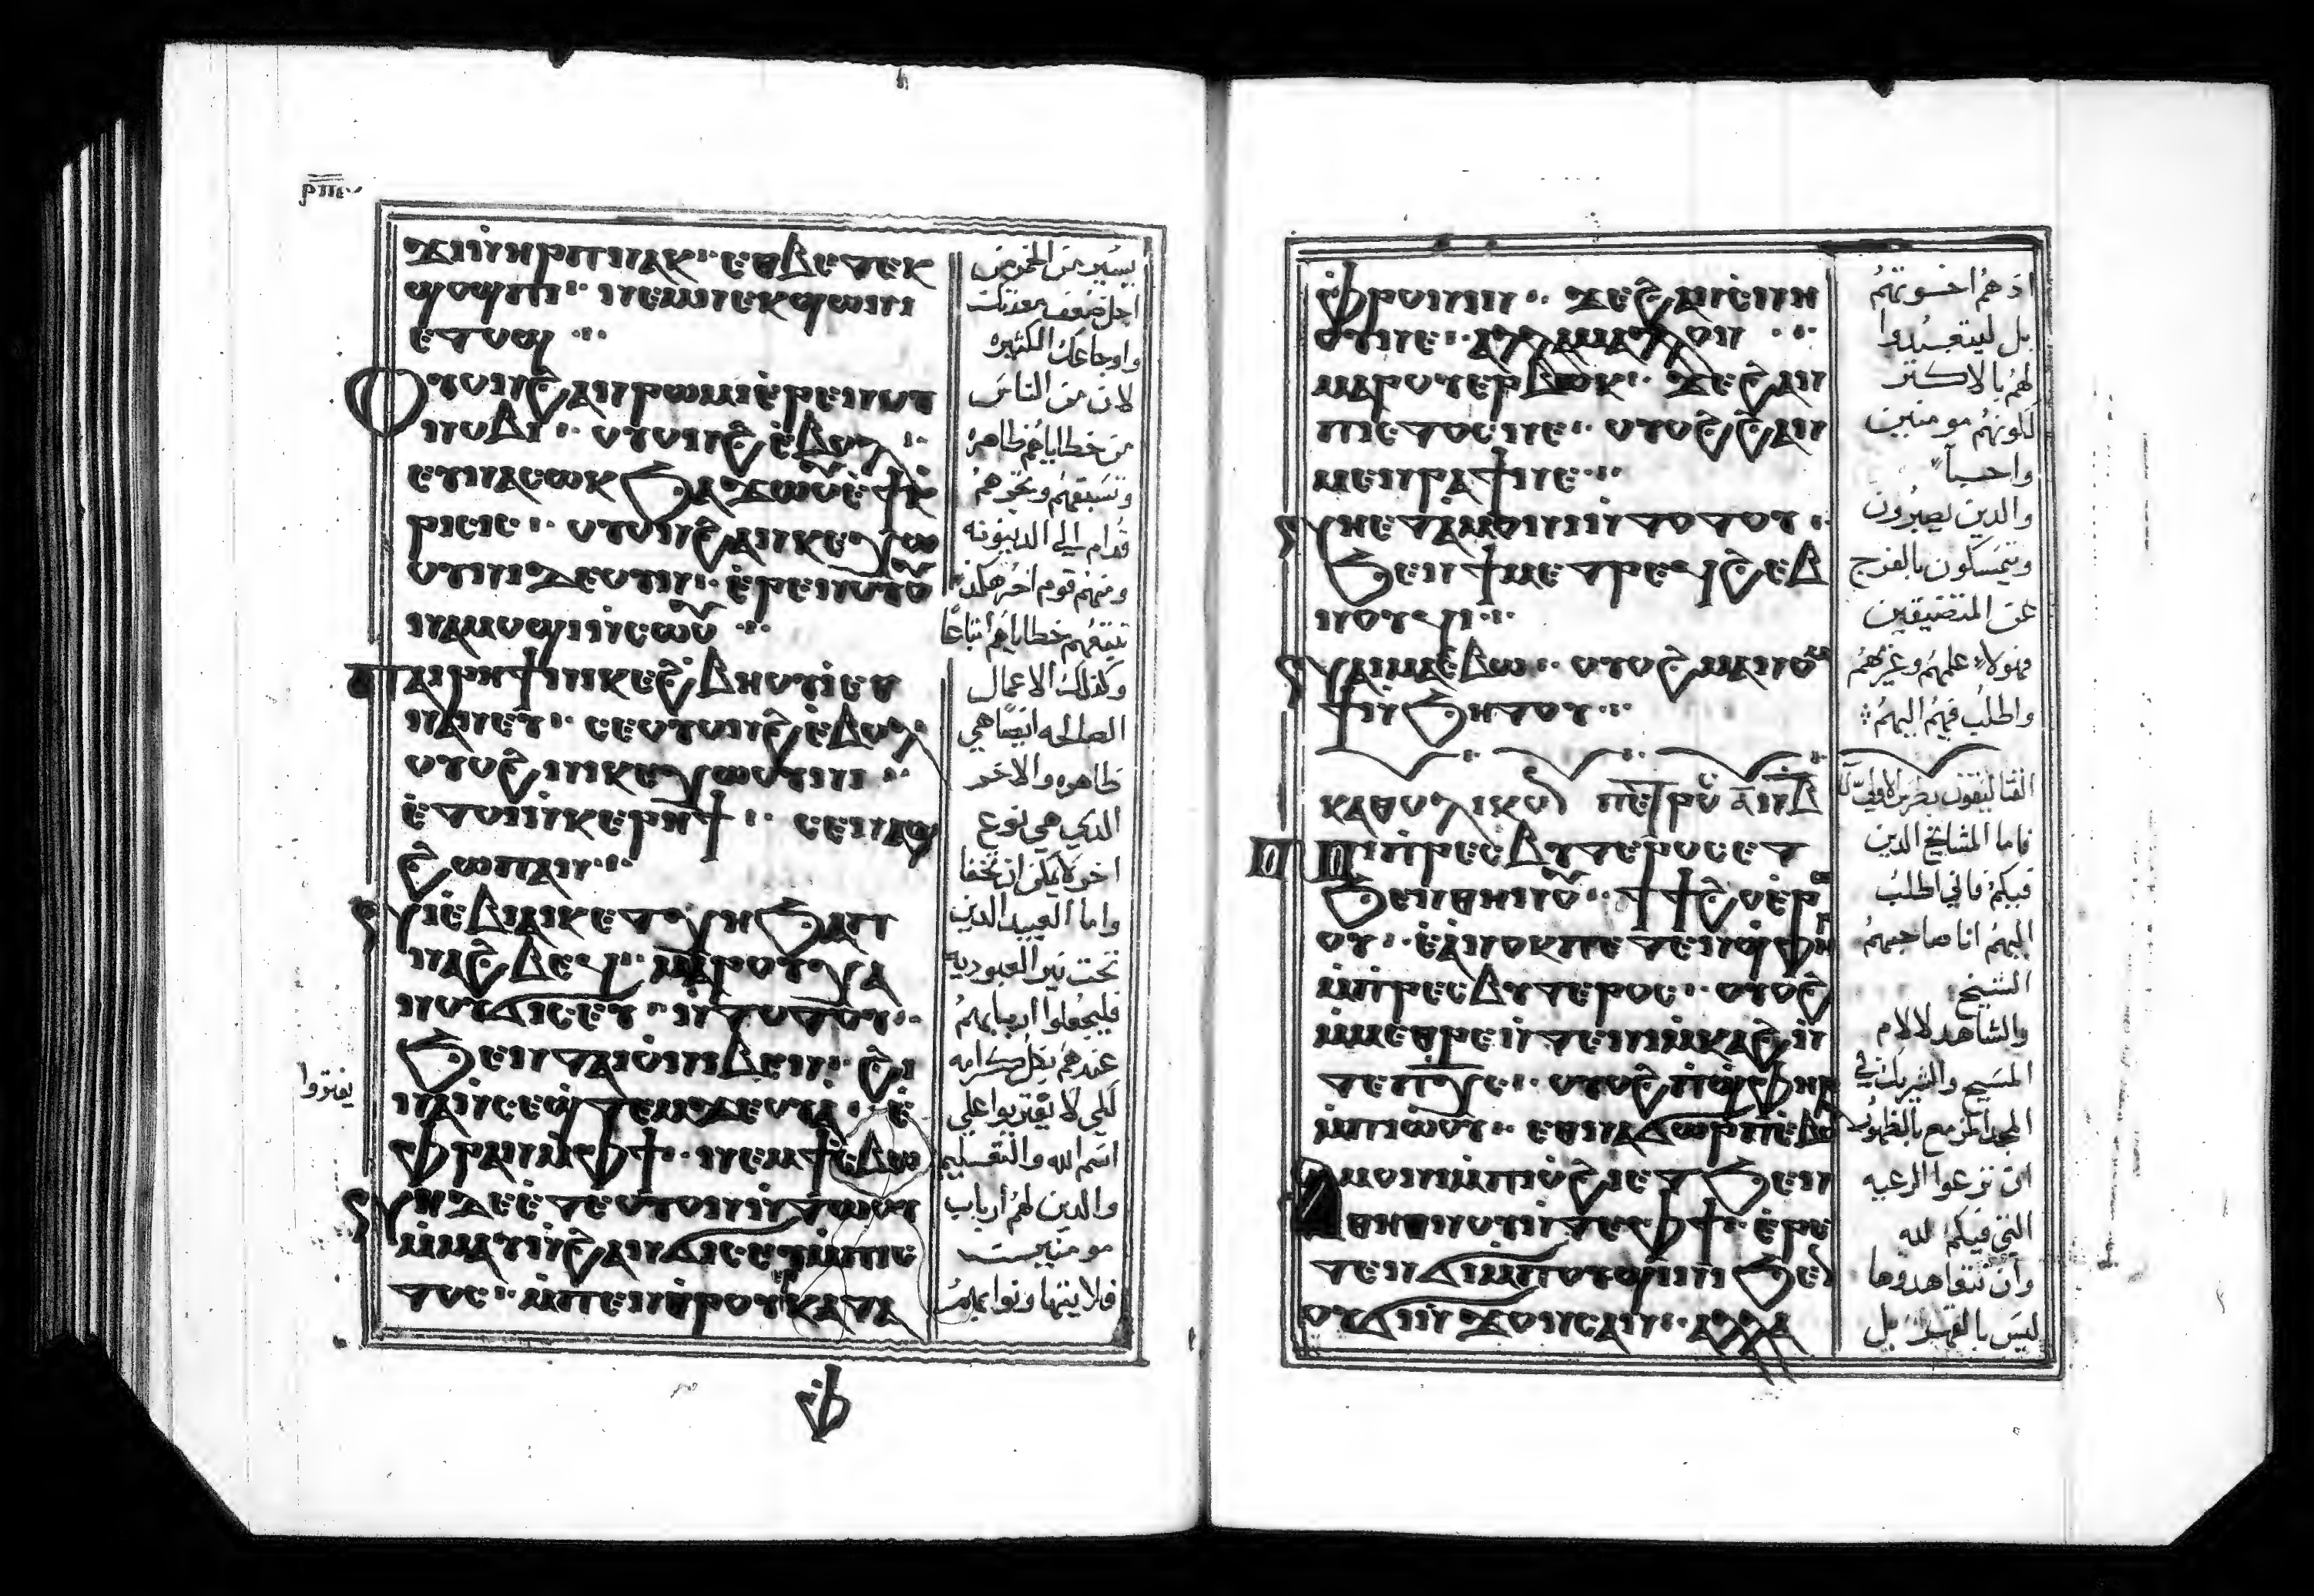 ⲣⲡⲉ
ϫⲓⲛⲏⲣⲡ ⲛⲁⲕ· ⲉⲑⲃⲉ ⲡⲉⲕ
ϣⲟϣⲡⲓ· ⲛⲉⲙ ⲛⲉⲕϣⲱⲛⲓ
ⲉⲧⲟϣ
Ⲟⲩⲟⲛ ϩⲁⲛⲣⲱⲙⲓ ⲉ̀ⲣⲉ ⲛⲟⲩ
ⲛⲟⲃⲓ· ⲟⲩⲟⲛϩ ⲉ̀ⲃⲟⲗ·
ⲉⲩⲛⲁⲥⲱⲕ ϧⲁϫⲱⲟⲩ ⲉ̀ϯⲕ
ⲣⲓⲥⲓⲥ· ⲟⲩⲟⲛ ϩⲁⲛⲕⲉⲭⲱ
ⲟⲩⲛⲓ ⲇⲉ ⲟⲩⲛ· ⲉ̀ⲣⲉ ⲛⲟⲩⲟ
ⲛⲁⲙⲟϣⲓ ⲛ̀ⲥⲱⲟⲩ
Ⲡⲁⲓⲣⲏϯ ⲛⲓⲕⲉϩⲃⲏⲟⲩⲓ ⲉⲑ
ⲛⲁⲛⲉⲩ· ⲥⲉⲟⲩⲟⲛϩ ⲉ̀ⲃⲟⲗ
ⲟⲩⲟϩ ⲛⲓⲕⲉⲭⲱⲟⲩⲛⲓ
ⲉ̀ⲧⲟⲓ ⲛ̀ⲕⲉⲣⲏϯ· ⲥⲉⲛⲁϣ
ϩⲱⲡ ⲁⲛ
Ⲛⲓⲉ̀ⲃⲓⲁⲓⲕ ⲉⲧⲭⲏ ϧⲁ ⲡ
ⲛⲁϩⲃⲉϥ· ⲙⲁⲣⲟⲩⲭⲁ
ⲛⲟⲩϭⲓⲥⲉⲩ ⲛ̀ⲧⲟⲧⲟⲩ·
ϧⲉⲛ ⲧⲁⲓⲟ̀ ⲛⲓⲃⲉⲛ· ϩⲓ
ⲛⲁ ⲛ̀ⲥⲉϣⲧⲉⲙϫⲉⲟⲩⲁ̀· ⲉ̀
ⲫⲣⲁⲛ ⲙ̀ⲫϯ· ⲛⲉⲙ ϯⲥⲃⲱ
Ⲛⲏ ⲇⲉ ⲉ̀ⲧⲉ ⲟⲩⲟⲛ ⲛ̀ⲧⲱⲟⲩ
ⲙ̀ⲙⲁⲩ ⲛ̀ϩⲁⲛϭⲓⲥⲉⲩ ⲙ̀ⲡⲓⲥ
ⲧⲟⲥ· ⲙ̀ⲡⲉⲛⲑⲣⲟⲩⲕⲁⲧⲁ
ⲫ
يسير من الخمر من
اجل ضعف معدتك
واوجاعك الكثيره
لان من الناس
من خطاياهم ظاهره
وتسبقهم وتنحوهم
قدام الي الدينونه
ومنهم قوم اخر هكذا
تتبعهم خطاياهم اتباعا
وكذلك الاعمال
الصالحه ايضا هي
ظاهره والاخر
الذي هي نوع
اخر لا يمكن ان تخفا
واما العبيد الذين
تحت نير العبوديه
فليجعلوا اربابهم
عندهم بكل كرامه
لكي لا يفتروا علي
اسم الله والتعليم
والدين لهم ارباب
مومنين
فلا يتهاونوا بهم
يفتروا
ⲫⲣⲟⲛⲓⲛ· ϫⲉ ϩⲁⲛⲥ̀ⲛⲏ
ⲟⲩ ⲛⲉ· ⲁⲗⲗⲁ ⲙⲁⲗⲗⲟⲛ
ⲙⲁⲣⲟⲩⲉⲣⲃⲱⲕ· ϫⲉ ϩⲁⲛ
ⲡⲓⲥⲧⲟⲥ ⲛⲉ· ⲟⲩⲟϩ ϩⲁⲛ
ⲙⲉⲛⲣⲁϯ ⲛⲉ
Ⲛⲏ ⲉⲧⲁⲙⲟⲛⲓ ⲛ̀ⲧⲟⲧⲟⲩ·
ϧⲉⲛ ϯⲙⲉⲧⲣⲉϥϩⲉⲃ
ⲛⲟⲩϥⲓ
Ⲛⲁⲓ ⲙⲁⲥⲃⲱ· ⲟⲩⲟϩ ⲙⲁⲛⲟⲙ
ϯ ⲛ̀ϧⲏⲧⲟⲩ
ⲕⲁⲑⲟⲗⲓⲕⲟⲛ ⲡⲉⲧⲣⲟⲩ ⲁ̅
Ⲡⲓⲡⲣⲉⲥⲃⲩⲧⲉⲣⲟⲥ ⲉⲧ
ϧⲉⲛ ⲑⲏⲛⲟⲩ· ϯϯϩⲟ ⲉ̀ⲣⲱ
ⲟⲩ· ⲉ̀ⲁⲛⲟⲕ ⲡⲉ ⲧⲉⲛϣⲫⲏⲣ
ⲙ̀ⲡⲣⲉⲥⲃⲩⲧⲉⲣⲟⲥ· ⲟⲩⲟϩ
ⲙ̀ⲙⲉⲑⲣⲉ ⲛ̀ⲧⲉ ⲛⲓⲙ̀ⲕⲁϩ ⲛ̀
ⲧⲉ ⲡⲭⲥ· ⲟⲩⲟϩ ⲡ̀ϣⲫⲏⲣ
ⲙ̀ⲡⲓⲱ̀ⲟⲩ· ⲉⲑⲛⲁϭⲱⲣⲡ ⲉ̀ⲃⲟ
Ⲁⲙⲟⲛⲓ ⲙ̀ⲡⲓⲟ̀ϩⲓ ⲉⲧϧⲉⲛ
ⲑⲏⲛⲟⲩ ⲛ̀ⲧⲉ ⲫϯ· ⲉ̀ⲣⲉ
ⲧⲉⲛϭⲓ ⲙ̀ⲡⲟⲩϣⲓⲛⲓ ϧⲉⲛ
ⲟⲩϭⲓ ⲛ̀ϫⲟⲛⲥ ⲁⲛ· ⲁⲗⲗⲁ
اذ هم اخوتهم
بل ليتعبدوا
لهم بالاكثر
لكونهم مومنين
واحبا
والذين يصبرون
ويتمسكون بالفرج
عن المتضيقين
فهولاء علمهم وعزيهم
واطلب فيهم اليهم
فاما المشايخ الذين
فيكم فاني اطلب
اليهم انا صاحبهم
الشيخ
والشاهد لالام
المسيح والشريك في
المجد المزمع بالظهور
ان ترعوا الرعيه
التي فيكم لله
وان تتعاهدوها
ليس بالقهر بل